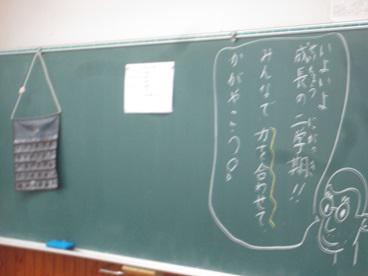 いよいよ
成長の二学期!!
せいちょう
みんなで力を合わせて
かがやこう!